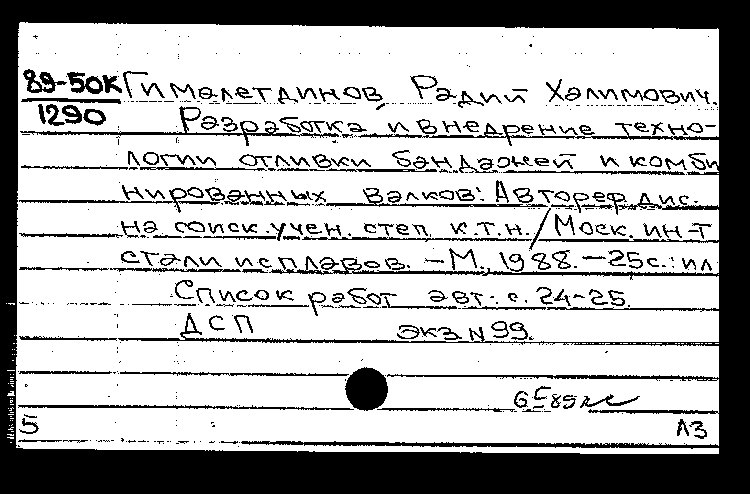 89-50К Гималетдинов, Радий Халимович.
1290 Разработка и внедрение техно-
логии отливки бандажей и комби
нированных валков: Автореф дис.
на соиск.учен. степ. к.т.н. / Моск. ин-т
стали и сплавов. - М., 1988. - 25с.: ил
Список работ авт.: с. 24-25.
ДСП экз N 99.
5 ЛЗ